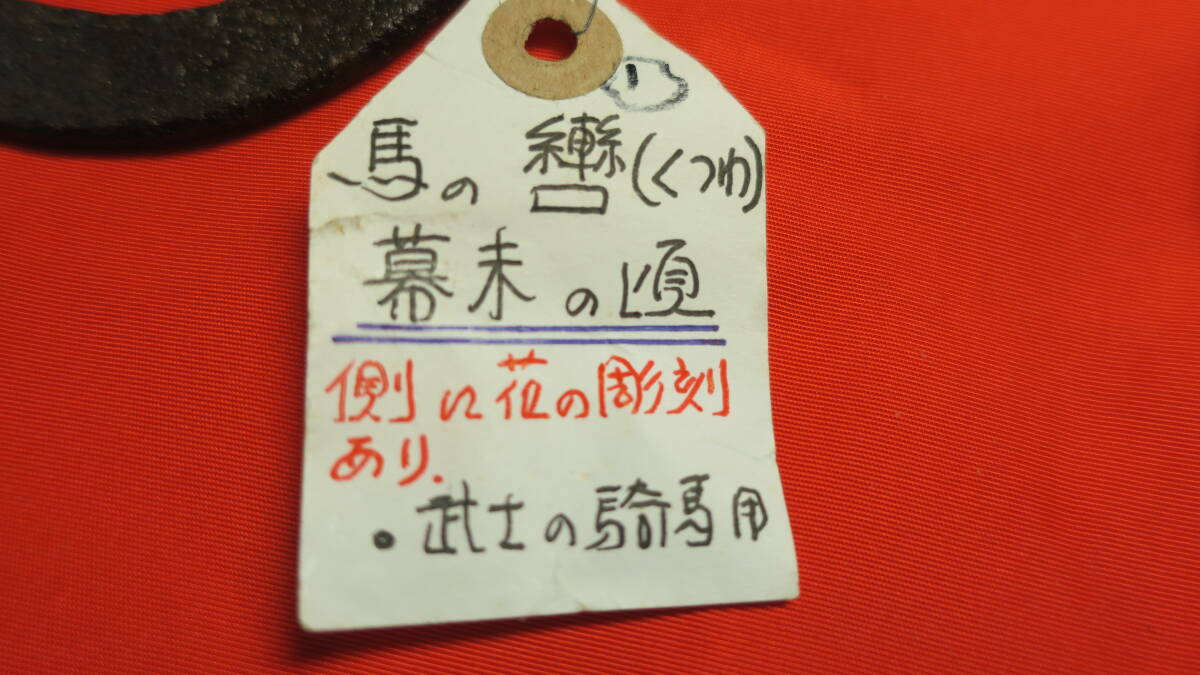 ①
馬の轡(くつわ)
幕末の頃
側に花の彫刻
あり.
・武士の騎馬用